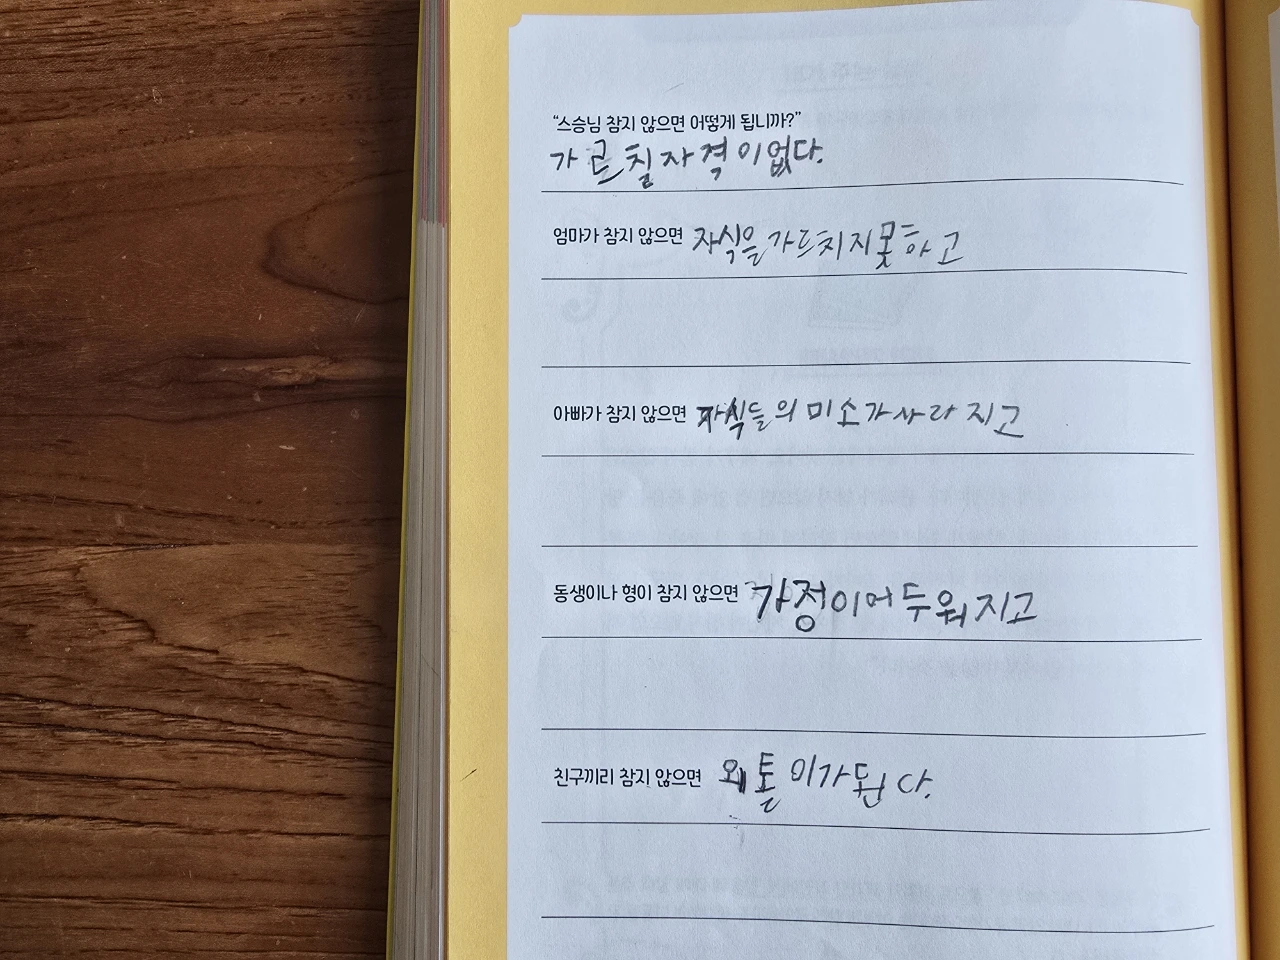 “스승님 참지 않으면 어떻게 됩니까?”
가르칠자격이없다.
엄마가 참지 않으면 자식을가르치지못하고
아빠가 참지 않으면 자식들의미소가사라지고
동생이나 형이 참지 않으면 가정이어두워지고
친구끼리 참지 않으면 외톨이가된다.